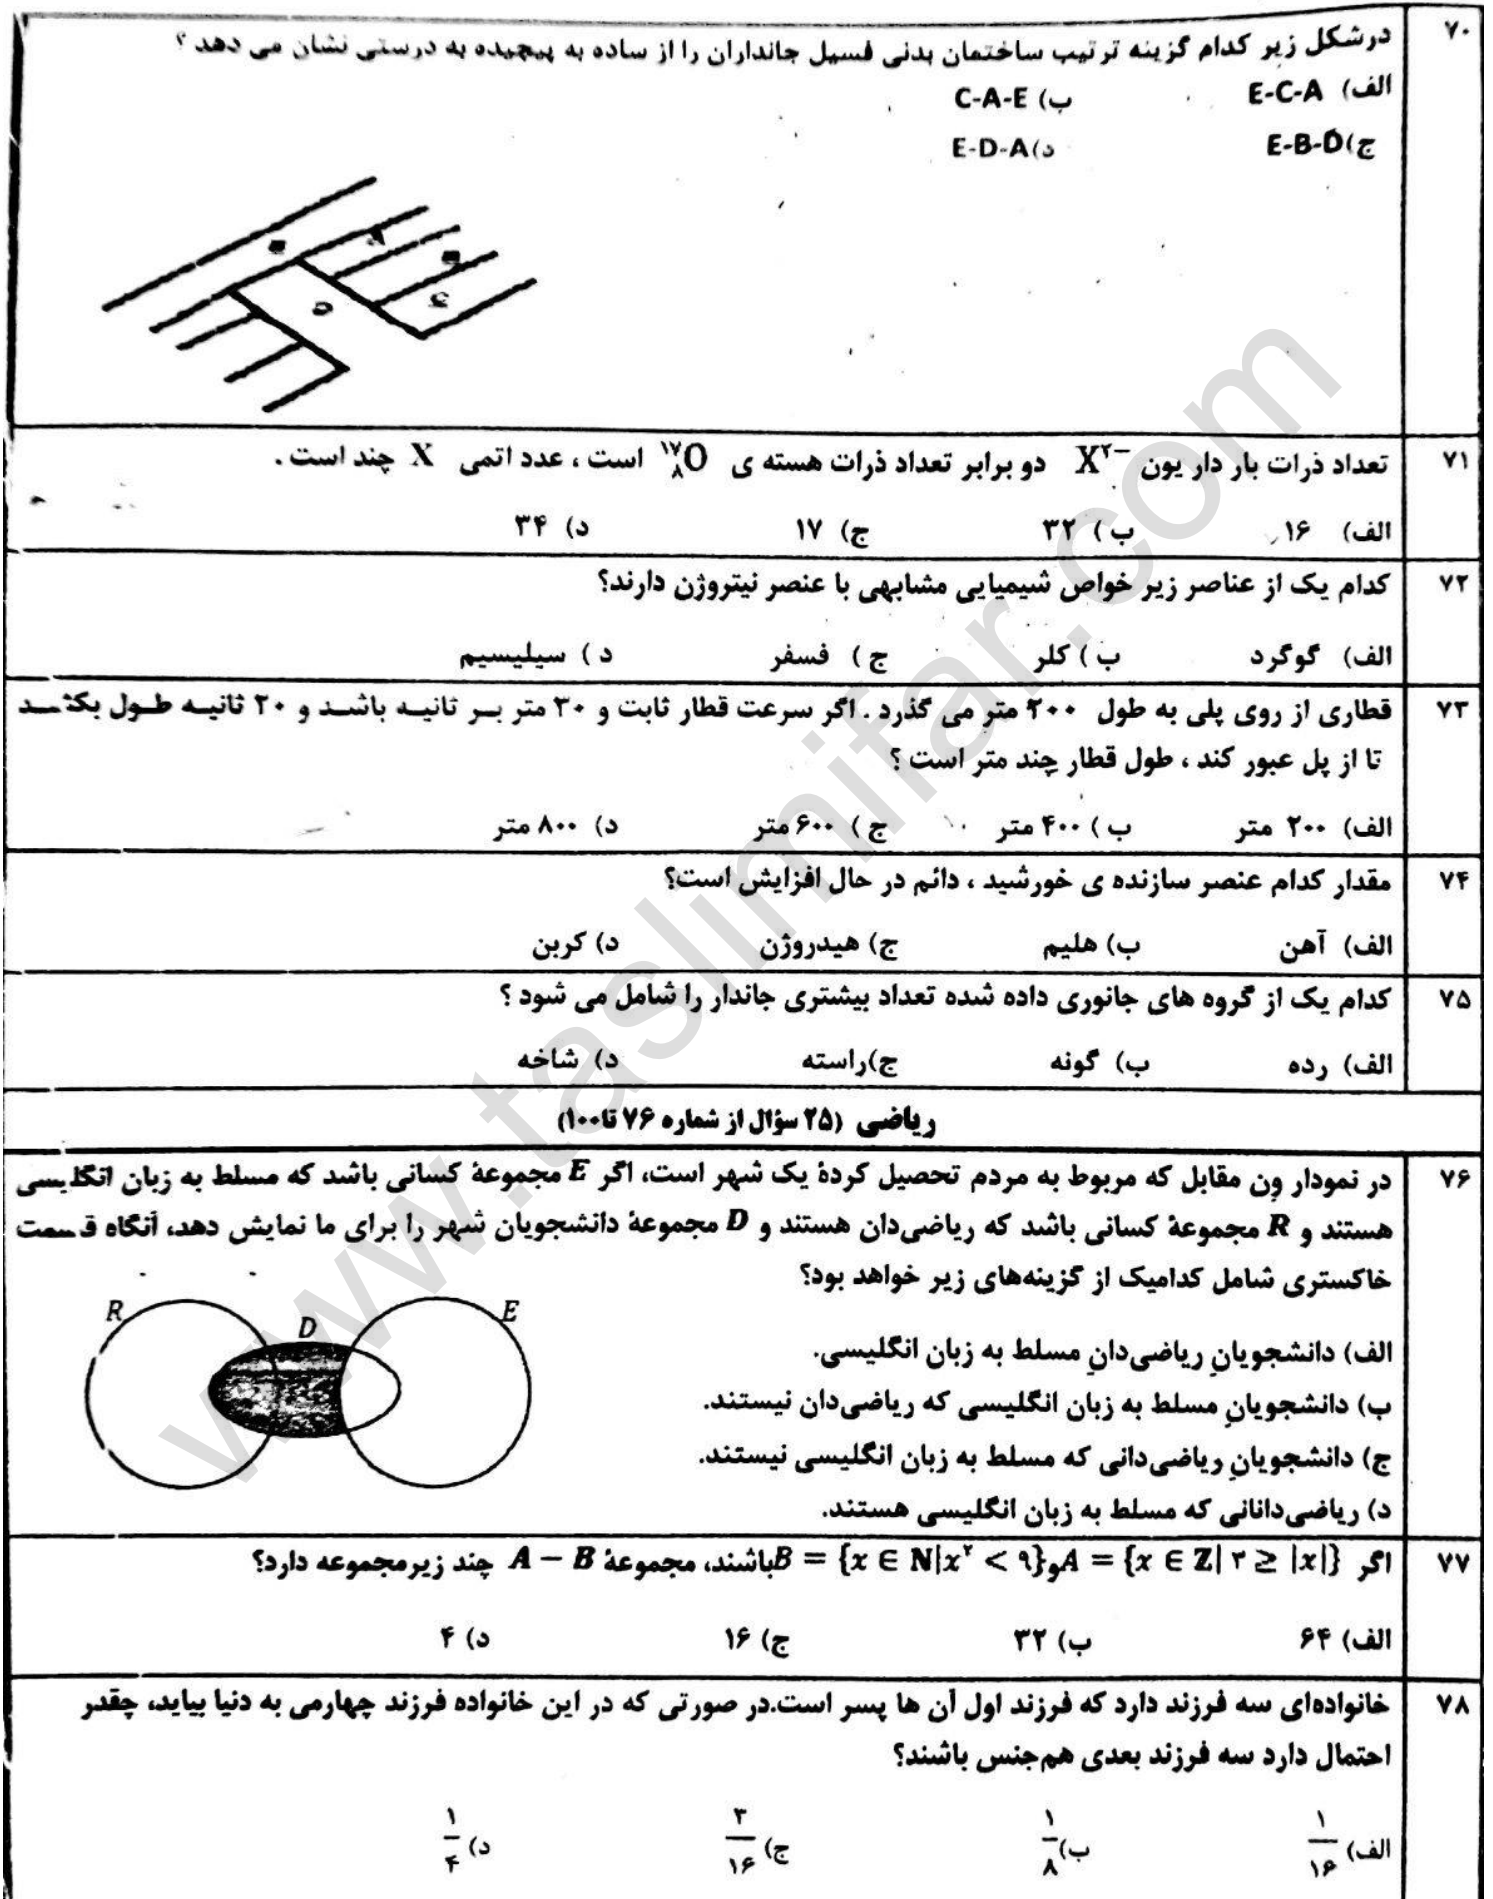 ۷۰
درشکل زیر کدام گزینه ترتیب ساختمان بدنی فسیل جانداران را از ساده به پیچیده به درستی نشان می دهد ؟
الف) E-C-A ب) C-A-E
ج) E-B-D د) E-D-A
A
C
۷۱
تعداد ذرات بار دار یون X²⁻ دو برابر تعداد ذرات هسته ی ¹⁷₈O است ، عدد اتمی X چند است .
الف) ۱۶ ب ) ۳۲ ج) ۱۷ د) ۳۴
۷۲
کدام یک از عناصر زیر خواص شیمیایی مشابهی با عنصر نیتروژن دارند؟
الف) گوگرد ب ) کلر ج ) فسفر د ) سیلیسیم
۷۳
قطاری از روی پلی به طول ۲۰۰ متر می گذرد . اگر سرعت قطار ثابت و ۳۰ متر بر ثانیه باشد و ۲۰ ثانیه طول بکشد
تا از پل عبور کند ، طول قطار چند متر است ؟
الف) ۲۰۰ متر ب ) ۴۰۰ متر ج ) ۶۰۰ متر د) ۸۰۰ متر
۷۴
مقدار کدام عنصر سازنده ی خورشید ، دائم در حال افزایش است؟
الف) آهن ب) هلیم ج) هیدروژن د) کربن
۷۵
کدام یک از گروه های جانوری داده شده تعداد بیشتری جاندار را شامل می شود ؟
الف) رده ب) گونه ج)راسته د) شاخه
ریاضی (۲۵ سؤال از شماره ۷۶ تا۱۰۰)
۷۶
در نمودار وِن مقابل که مربوط به مردم تحصیل کردهٔ یک شهر است، اگر E مجموعهٔ کسانی باشد که مسلط به زبان انگلیسی
هستند و R مجموعهٔ کسانی باشد که ریاضی‌دان هستند و D مجموعهٔ دانشجویان شهر را برای ما نمایش دهد، آنگاه قسمت
خاکستری شامل کدامیک از گزینه‌های زیر خواهد بود؟
R D E
الف) دانشجویانِ ریاضی‌دانِ مسلط به زبان انگلیسی.
ب) دانشجویانِ مسلط به زبان انگلیسی که ریاضی‌دان نیستند.
ج) دانشجویانِ ریاضی‌دانی که مسلط به زبان انگلیسی نیستند.
د) ریاضی‌دانانی که مسلط به زبان انگلیسی هستند.
۷۷
اگر A = {x ∈ Z| ۳ ≥ |x|} و B = {x ∈ N|x² < ۹} باشند، مجموعهٔ A − B چند زیرمجموعه دارد؟
الف) ۶۴ ب) ۳۲ ج) ۱۶ د) ۴
۷۸
خانواده‌ای سه فرزند دارد که فرزند اول آن ها پسر است.در صورتی که در این خانواده فرزند چهارمی به دنیا بیاید، چقدر
احتمال دارد سه فرزند بعدی هم‌جنس باشند؟
الف) ۱/۱۶ ب) ۱/۸ ج) ۳/۱۶ د) ۱/۴
www.taslimifar.com